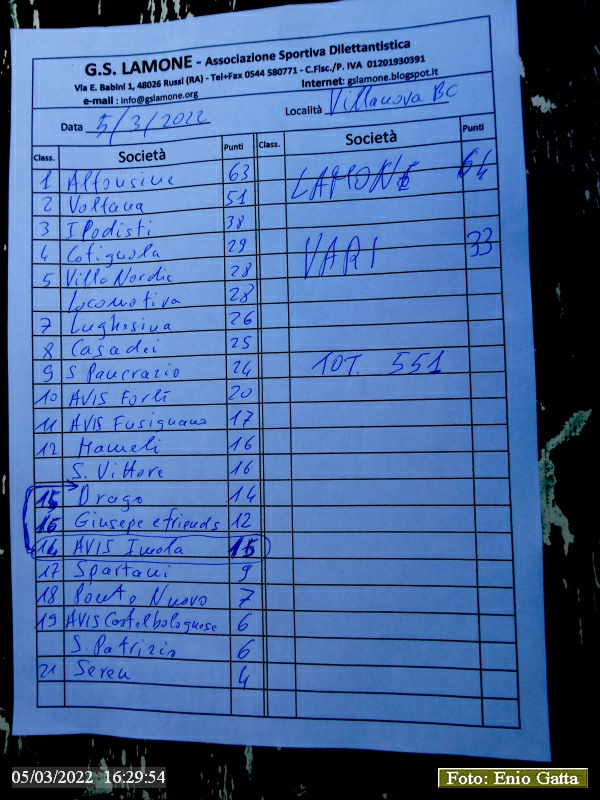 G.S. LAMONE - Associazione Sportiva Dilettantistica
Via E. Babini 1, 48026 Russi (RA) - Tel+Fax 0544 580771 - C.Fisc./P. IVA 01201930391
e-mail : info@gslamone.org Internet: gslamone.blogspot.it
Data 5/3/2022 Località Villanova BC
Class. Società Punti Class. Società Punti
1 Alfonsine 63 LAMONE 64
2 Voltana 51
3 I Podisti 38
4 Cotignola 29 VARI 33
5 Villa Nordic 28
Locomotiva 28
7 Lughesina 26
8 Casadei 25
9 S Pancrazio 24 TOT. 551
10 AVIS Forlì 20
11 AVIS Fusignano 17
12 Mameli 16
S. Vittore 16
15 Drago 14
16 Giusepe e friends 12
14 AVIS Imola 15
17 Spartani 9
18 Ponte Nuovo 7
19 AVIS Castelbolognese 6
S. Patrizio 6
21 Seren 4
05/03/2022 16:29:54
Foto: Enio Gatta